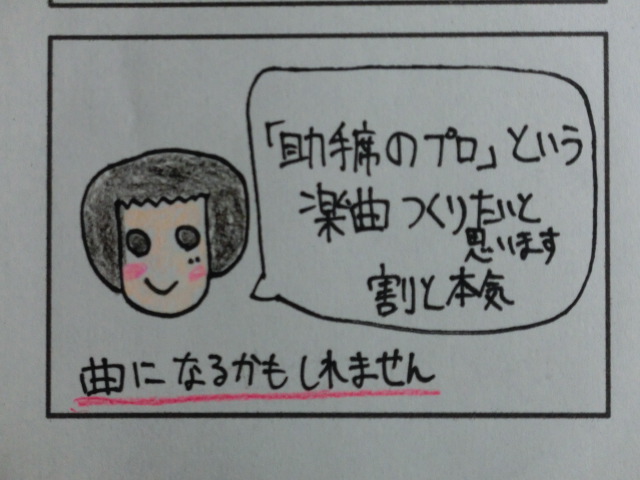 「助手席のプロ」という
楽曲つくりたいと
思います
割と本気
曲になるかもしれません